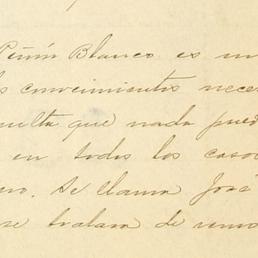 Peñón Blanco es un
los conocimientos nece
sulta que nada pued
en todos los casos
Se llama José
se tratara de